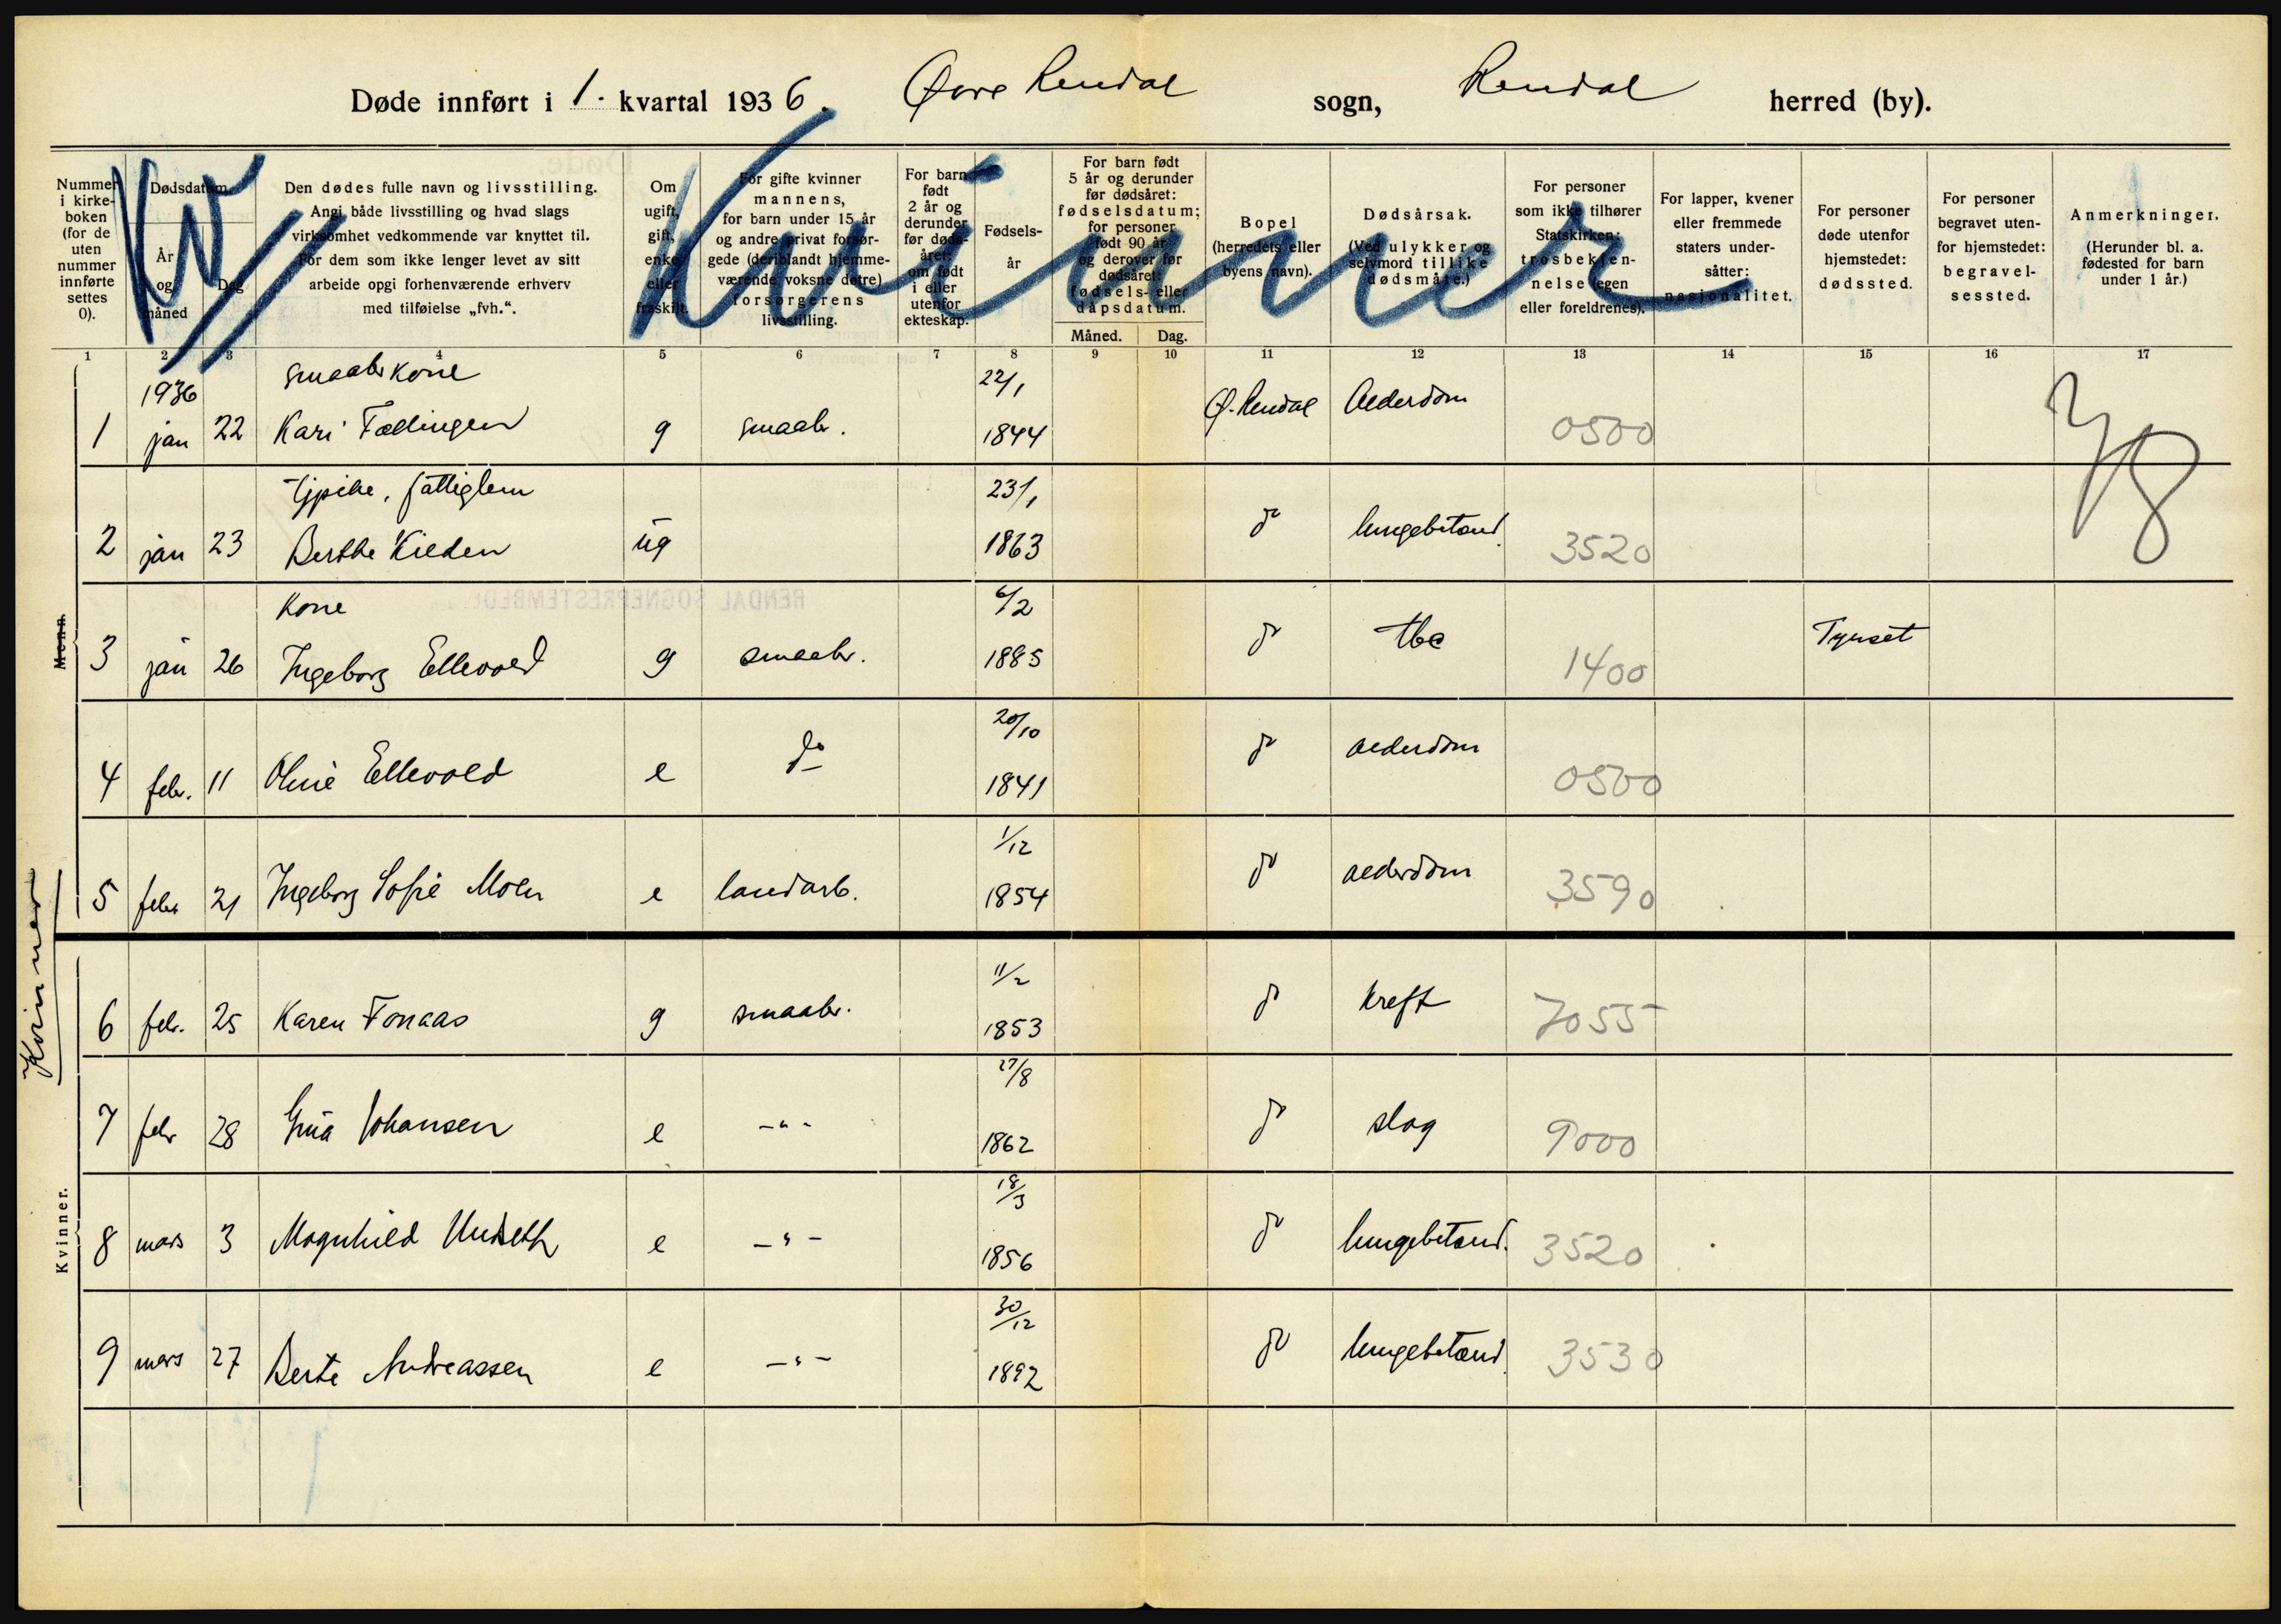 Døde innført i 1. kvartal 1936. Øvre Rendal sogn, Rendal herred (by).
Kv Kvinner
Nummer i kirke- boken (for de uten nummer innførte settes 0).
Dødsdatum.
År og måned
Dag
Den dødes fulle navn og livsstilling.
Angi både livsstilling og hvad slags
virksomhet vedkommende var knyttet til.
For dem som ikke lenger levet av sitt
arbeide opgi forhenværende erhverv
med tilføielse „fvh.“.
Om ugift, gift, enke eller fraskilt.
For gifte kvinner
mannens,
for barn under 15 år
og andre privat forsør-
gede (deriblandt hjemme-
værende voksne døtre)
forsørgerens
livsstilling.
For barn født 2 år og derunder før døds- året: om født i eller utenfor ekteskap.
Fødsels- år
For barn født
5 år og derunder
før dødsåret:
fødselsdatum;
for personer
født 90 år
og derover før
dødsåret:
fødsels- eller
dåpsdatum.
Måned. Dag.
Bopel
(herredets eller
byens navn).
Dødsårsak.
(Ved ulykker og
selvmord tillike
dødsmåte.)
For personer
som ikke tilhører
Statskirken:
trosbekjen-
nelse (egen
eller foreldrenes).
For lapper, kvener
eller fremmede
staters under-
såtter:
nasjonalitet.
For personer
døde utenfor
hjemstedet:
dødssted.
For personer
begravet uten-
for hjemstedet:
begravel-
sessted.
Anmerkninger.
(Herunder bl. a.
fødested for barn
under 1 år.)
1 2 3 4 5 6 7 8 9 10 11 12 13 14 15 16 17
1936 smaabr kone 22/1
1 jan 22 Kari Fællingen g smaabr. 1844 Ø. Rendal Alderdom 0500
fattiglem 23/1
2 jan 23 Berthe Kilden ug 1863 do lungebetænd. 3520
Kone 6/2
3 jan 26 Ingeborg Ellevold g smaabr. 1885 do tbc 1400 Tynset
20/10
4 febr. 11 Oline Ellevold e do 1841 do alderdom 0500
1/12
5 febr 21 Ingeborg Sofie Moen e landarb. 1854 do alderdom 3590
11/2
6 febr. 25 Karen Fonaas g smaabr. 1853 do kreft 7055
27/8
7 febr 28 Gina Johansen e -"- 1862 do slag 9000
18/3
8 mars 3 Magnhild Undseth e -"- 1856 do lungebetænd. 3520
30/12
9 mars 27 Berte Andreassen e -"- 1892 do lungebetænd. 3530
Menn
Kvinner
Kvinner.
RENDAL SOGNEPRESTEMBEDE